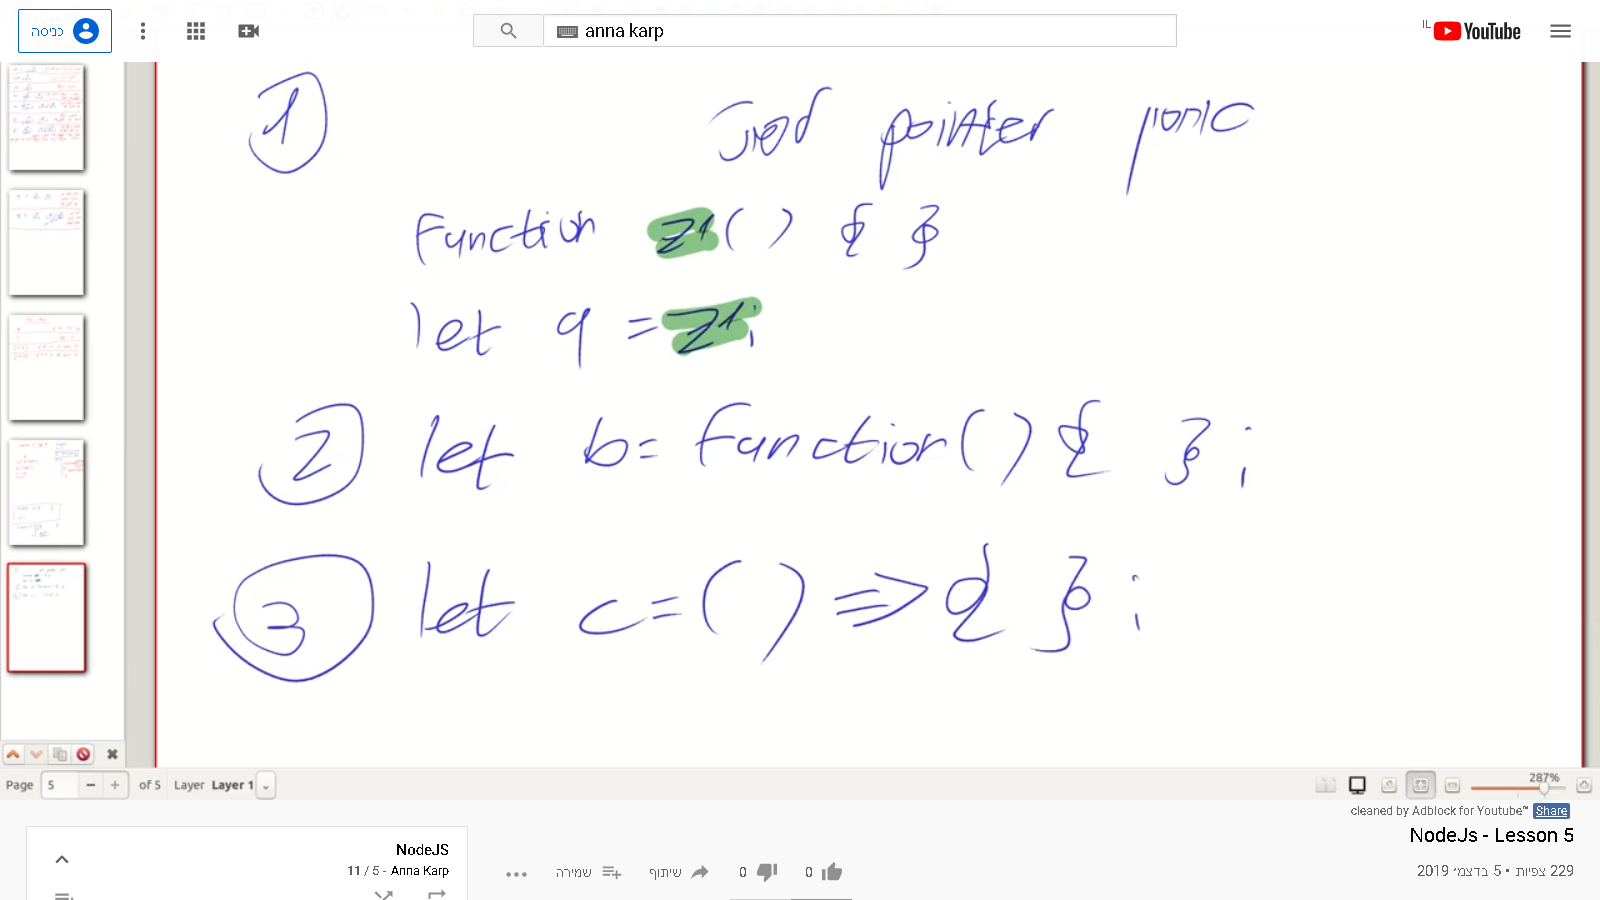 כניסה
anna karp
IL
YouTube
1
pointer
Function z1() { }
let q = z1;
2 let b = function() { };
3 let c = () => { };
Page 5 of 5 Layer Layer 1
287%
cleaned by Adblock for Youtube™ Share
NodeJs - Lesson 5
229 צפיות • 5 בדצמ׳ 2019
0 0 שיתוף שמירה
NodeJS
11 / 5 - Anna Karp